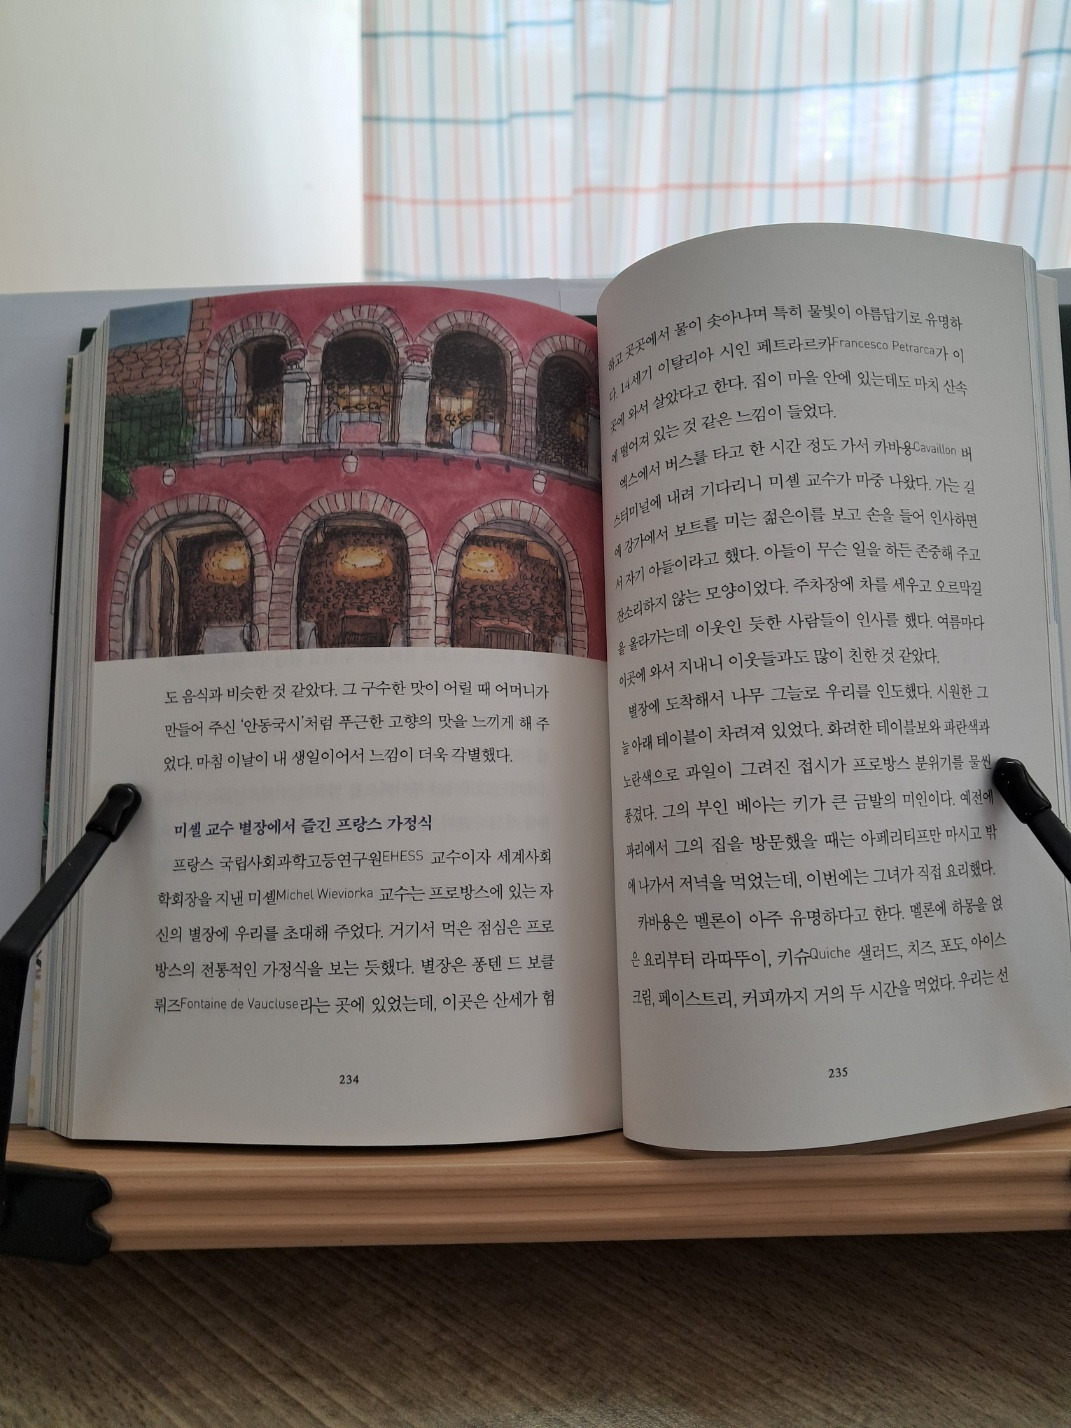 도 음식과 비슷한 것 같았다. 그 구수한 맛이 어릴 때 어머니가
만들어 주신 '안동국시'처럼 푸근한 고향의 맛을 느끼게 해 주
었다. 마침 이날이 내 생일이어서 느낌이 더욱 각별했다.
미셸 교수 별장에서 즐긴 프랑스 가정식
프랑스 국립사회과학고등연구원EHESS 교수이자 세계사회
학회장을 지낸 미셸Michel Wieviorka 교수는 프로방스에 있는 자
신의 별장에 우리를 초대해 주었다. 거기서 먹은 점심은 프로
방스의 전통적인 가정식을 보는 듯했다. 별장은 퐁텐 드 보클
뤼즈Fontaine de Vaucluse라는 곳에 있었는데, 이곳은 산세가 험
234
하고 곳곳에서 물이 솟아나며 특히 물빛이 아름답기로 유명하
다. 14세기 이탈리아 시인 페트라르카Francesco Petrarca가 이
곳에 와서 살았다고 한다. 집이 마을 안에 있는데도 마치 산속
에 떨어져 있는 것 같은 느낌이 들었다.
엑스에서 버스를 타고 한 시간 정도 가서 카바용Cavaillon 버
스터미널에 내려 기다리니 미셸 교수가 마중 나왔다. 가는 길
에 강가에서 보트를 미는 젊은이를 보고 손을 들어 인사하면
서 자기 아들이라고 했다. 아들이 무슨 일을 하든 존중해 주고
잔소리하지 않는 모양이었다. 주차장에 차를 세우고 오르막길
을 올라가는데 이웃인 듯한 사람들이 인사를 했다. 여름마다
이곳에 와서 지내니 이웃들과도 많이 친한 것 같았다.
별장에 도착해서 나무 그늘로 우리를 인도했다. 시원한 그
늘 아래 테이블이 차려져 있었다. 화려한 테이블보와 파란색과
노란색으로 과일이 그려진 접시가 프로방스 분위기를 물씬
풍겼다. 그의 부인 베아는 키가 큰 금발의 미인이다. 예전에
파리에서 그의 집을 방문했을 때는 아페리티프만 마시고 밖
에 나가서 저녁을 먹었는데, 이번에는 그녀가 직접 요리했다.
카바용은 멜론이 아주 유명하다고 한다. 멜론에 하몽을 얹
은 요리부터 라따뚜이, 키슈Quiche 샐러드, 치즈, 포도, 아이스
크림, 페이스트리, 커피까지 거의 두 시간을 먹었다. 우리는 선
235